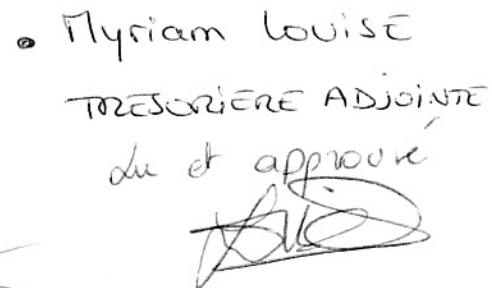 • Myriam LOUISE
TRESORIÈRE ADJOINTE
Lu et approuvé